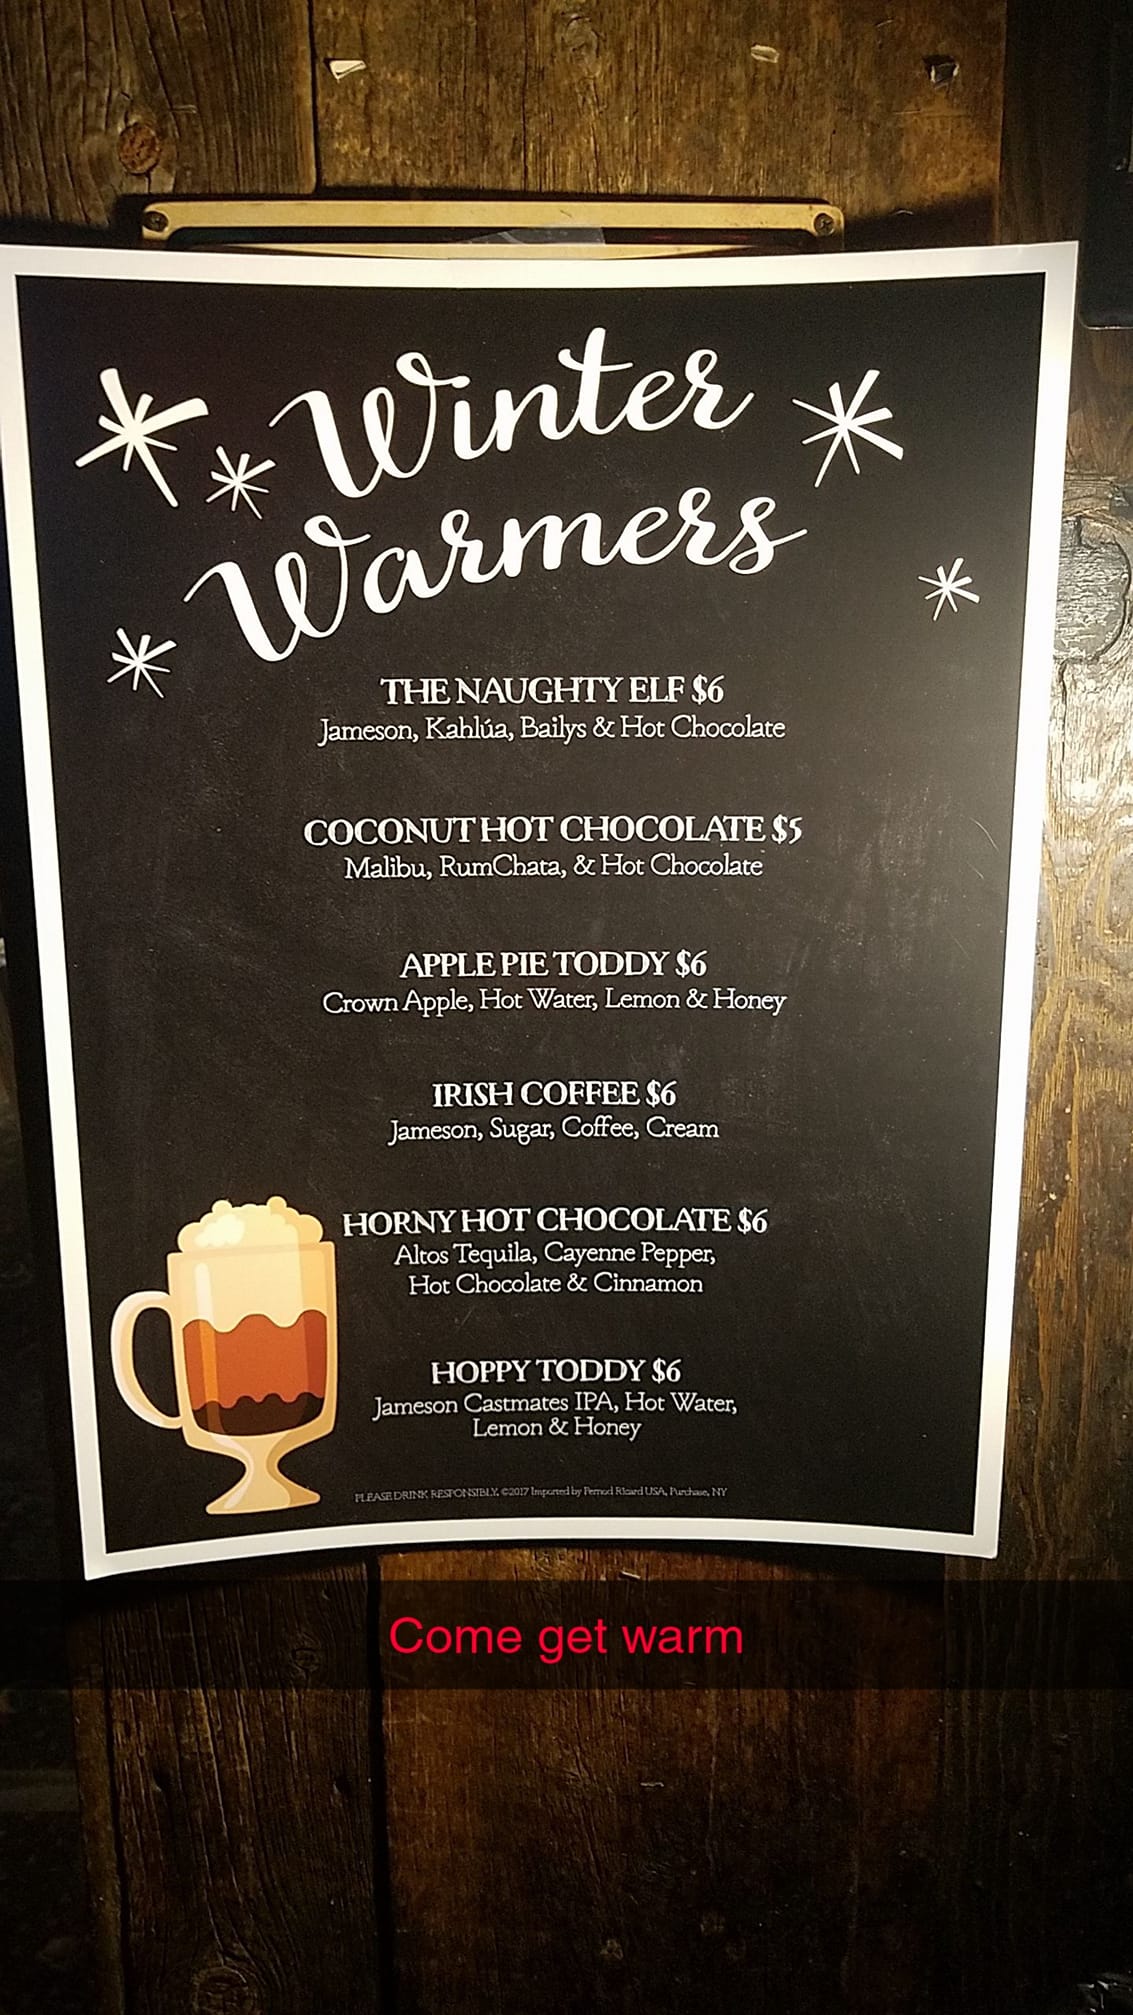 Winter
Warmers
THE NAUGHTY ELF $6
Jameson, Kahlúa, Bailys & Hot Chocolate
COCONUT HOT CHOCOLATE $5
Malibu, RumChata, & Hot Chocolate
APPLE PIE TODDY $6
Crown Apple, Hot Water, Lemon & Honey
IRISH COFFEE $6
Jameson, Sugar, Coffee, Cream
HORNY HOT CHOCOLATE $6
Altos Tequila, Cayenne Pepper,
Hot Chocolate & Cinnamon
HOPPY TODDY $6
Jameson Castmates IPA, Hot Water,
Lemon & Honey
PLEASE DRINK RESPONSIBLY. ©2017 Imported by Pernod Ricard USA, Purchase, NY
Come get warm